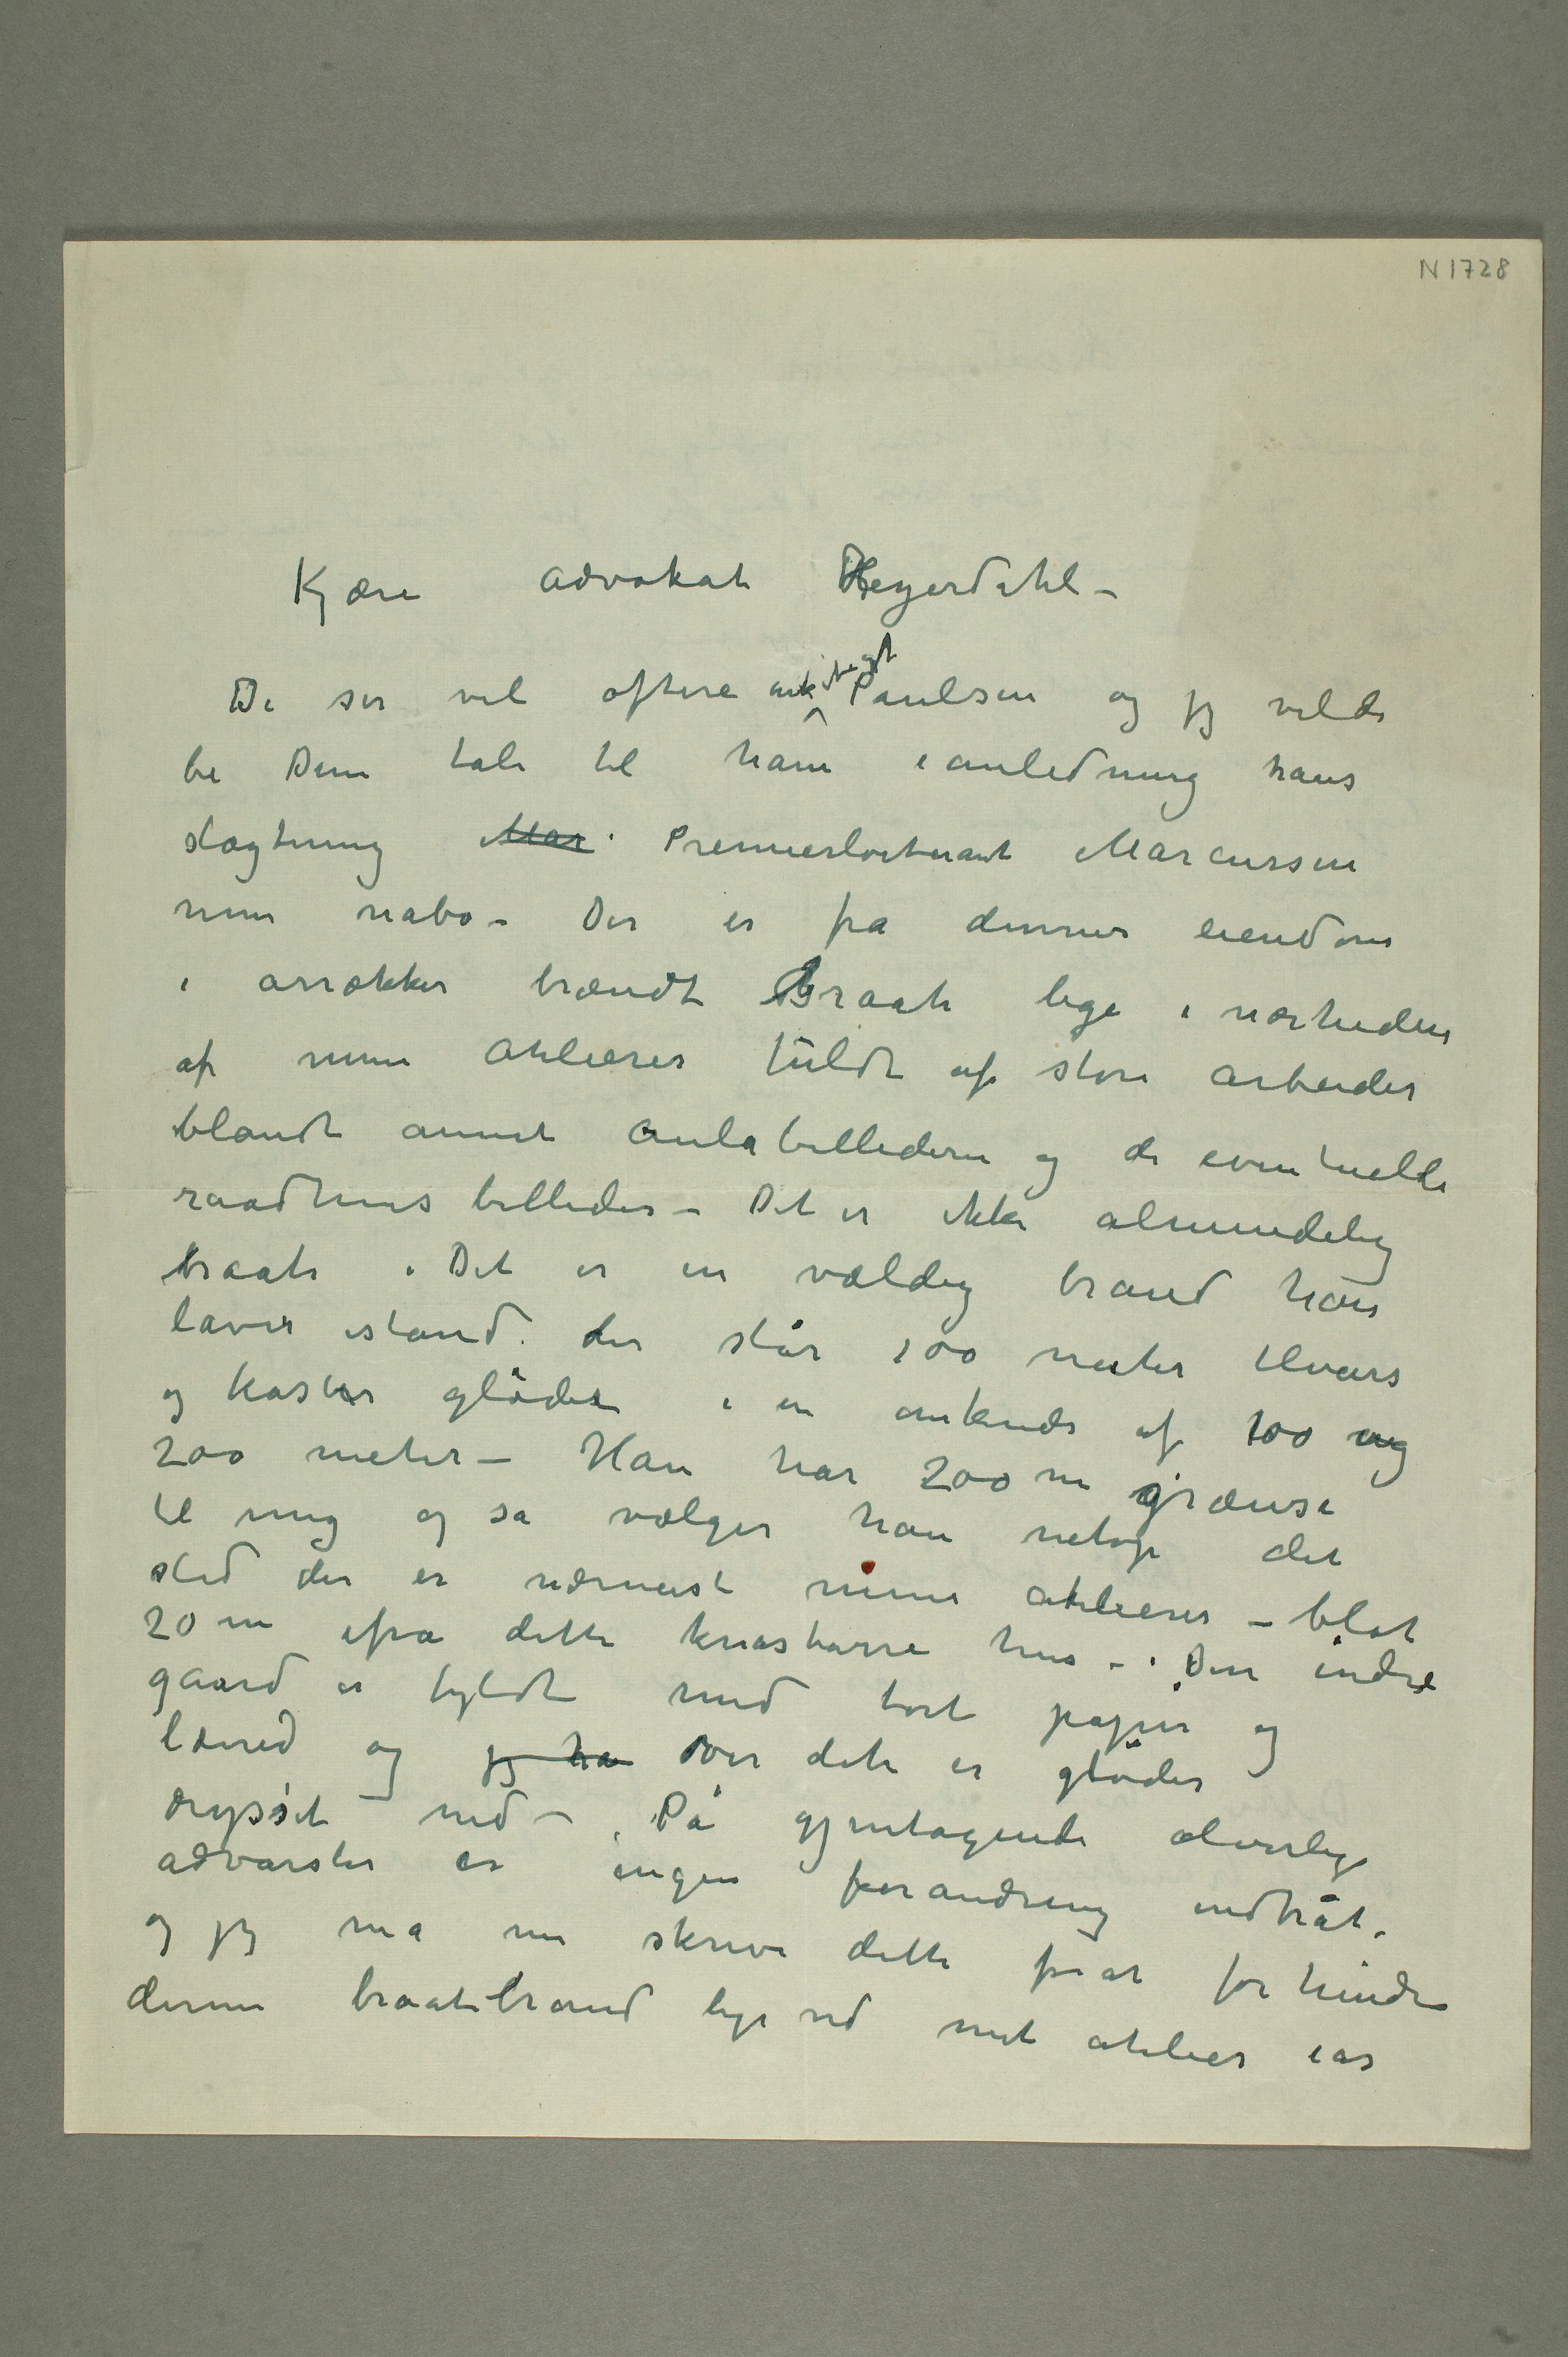 N 1728
Kjære advokat Heyerdahl –
De ser vel oftere arkitegt Paulsen og jeg vilde
be Dem tale til ham i anledning hans
slægtning Mar Premierløitnant Marcussen
min nabo – Der er fra dennes eiendom
i årrækker brændt braate lige i nærheden
af mine atelierer fuldt af store arbeider
blandt annet aulabillederne og de eventuelle
raadhusbilleder – Det er ikke almindelig
braate. Det er en vældig brand han
laver istand. der står 100 meter tilveirs
og kaster gløder i en omkreds af 100 og
200 meter – Han har 200 m grænse
til mig og så vælger han netop det
sted der er nærmest mine atelierer – blot
20 m ifra dette knastørre hus – Den indre
gaard er fyldt med tørt papir og
lærred og jeg ha over dette er gløder
drysset ned – På gjentagende alvorlige
advarsler er ingen forandring indtråt.
og jeg må nu skrive dette for at forhindre
denne braatebrand lige ved mit atelier iår